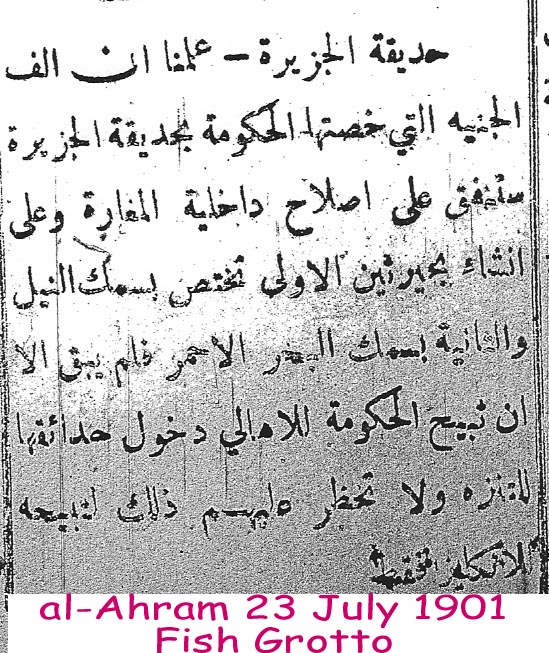 حديقة الجزيرة - علمنا ان الف
الجنيه التي خصتها الحكومة بحديقة الجزيرة
ستنفق على اصلاح داخلية المغارة وعلى
انشاء بحيرتين الاولى تختص بسمك النيل
والثانية بسمك البحر الاحمر فلم يبق الا
ان تبيح الحكومة للاهالي دخول حدائقها
للتنزه ولا تحظر عليهم ذلك لتبيحه
للانكليز فقط
al-Ahram 23 July 1901
Fish Grotto